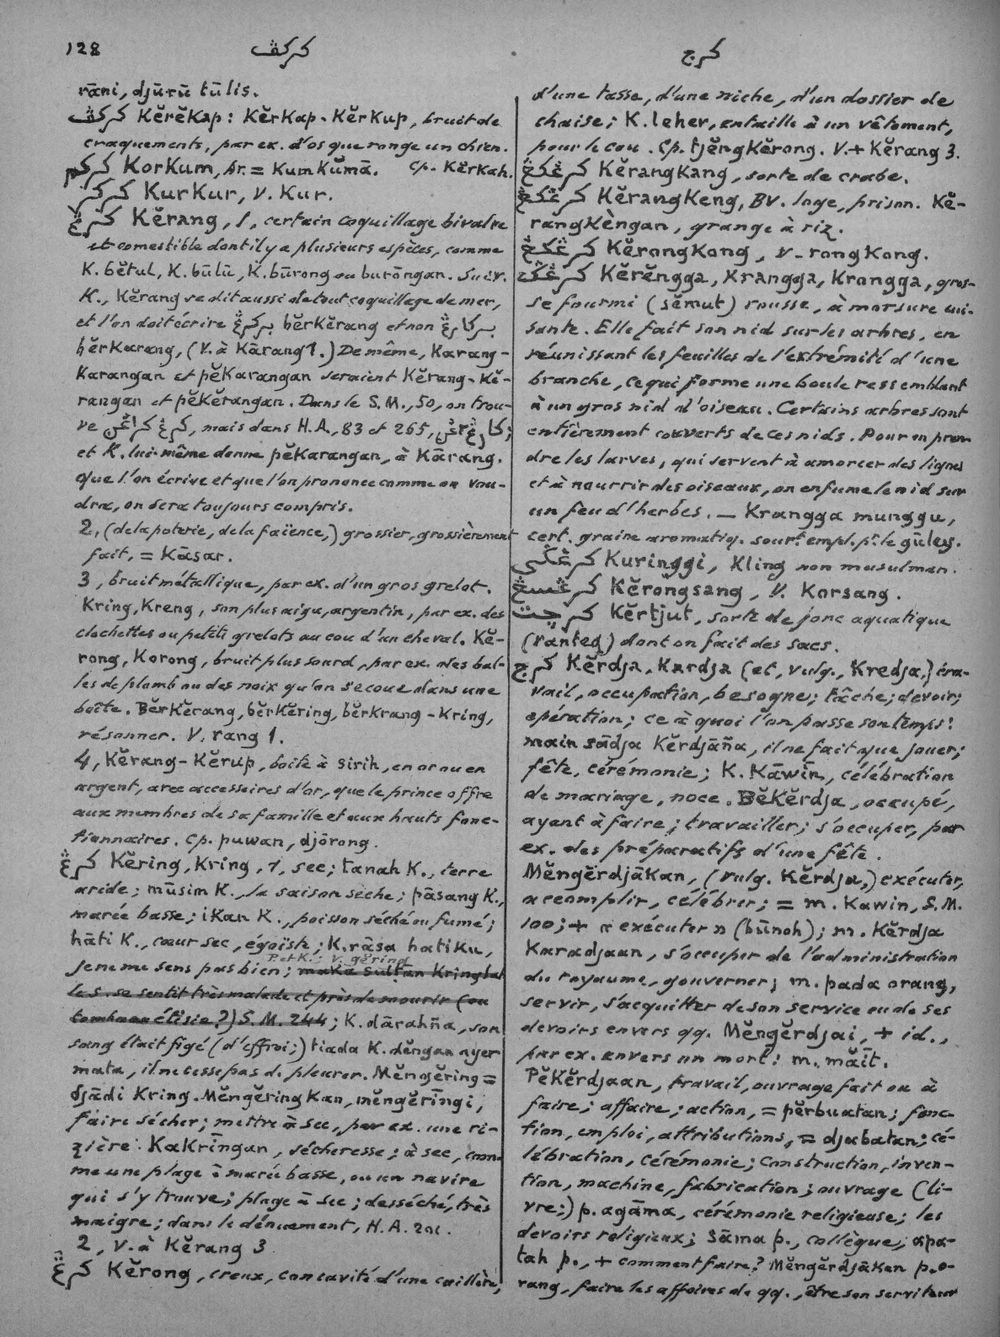 128
كركڤ
كرج
rāni, djūrū tūlis.
كركڤ Kĕrĕkap: Kĕrkap-Kĕrkup, bruit de
craquements, par ex. d'os que ronge un chien.
كركم Korkum, Ar. = Kumkŭmā. Cp. Kĕrkah.
كركر Kurkur, V. Kur.
كرڠ Kĕrang, 1, certain coquillage bivalve
et comestible dont il y a plusieurs espèces, comme
K. bĕtul, K. būlū, K. būrong ou burōngan. Suiv.
K., Kĕrang se dit aussi de tout coquillage de mer,
et l'on doit écrire بركرڠ bĕrKĕrang et non بركارڠ
bĕrKarang, (V. à Kārang 1.) De même, Karang-
Karangan et pĕKarangan seraient Kĕrang-Kĕ-
rangan et pĕKĕrangan. Dans le S.M., 50, on trou-
ve كرڠ كراڠن, mais dans H.A., 83 et 265, كارڠ٢ن;
et K. lui-même donne pĕKarangan, à Kārang.
Que l'on écrive et que l'on prononce comme on vou-
dra, on sera toujours compris.
2, (de la poterie, de la faïence,) grossier, grossièrement
fait, = Kāsar.
3, bruit métallique, par ex. d'un gros grelot.
Kring, Kreng, son plus aigu, argentin, par ex. des
clochettes ou petits grelots au cou d'un cheval. Kĕ-
rong, Korong, bruit plus sourd, par ex. des bal-
les de plomb ou des noix qu'on secoue dans une
boîte. BĕrKĕrang, bĕrKĕring, bĕrKrang-Kring,
résonner. V. rang 1.
4, Kĕrang-Kĕrup, boîte à sirih, en or ou en
argent, avec accessoires d'or, que le prince offre
aux membres de sa famille et aux hauts fonc-
tionnaires. Cp. puwan, djōrong.
كرڠ Kĕring, Kring, 1, sec; tanah K., terre
aride; mūsim K., la saison sèche; pāsang K.,
marée basse; iKan K., poisson séché ou fumé;
hāti K., cœur sec, égoïste; K. rāsa hatiku,
P. et K.: V. gĕring
je ne me sens pas bien; maka sulṭan Kring lat
le s. se sentit très malade et près de mourir (ou
tomba en étisie?) S.M. 244; K. dārahña, son
sang était figé (d'effroi;) tiada K. dĕngan ayer
mata, il ne cesse pas de pleurer. Mĕngĕring =
djādi Kring. MĕngĕringKan, mĕngĕrīngi,
faire sécher; mettre à sec, par ex. une ri-
zière. KaKrīngan, sécheresse; à sec, com-
me une plage à marée basse, ou un navire
qui s'y trouve; plage à sec; desséché, très
maigre; dans le dénuement, H.A. 201.
2, V. à Kĕrang 3
كرڠ Kĕrong, creux, concavité d'une cuillère,
d'une tasse, d'une niche, d'un dossier de
chaise; K. leher, entaille à un vêtement,
pour le cou. Cp. tjĕngKĕrong. V. + Kĕrang 3.
كرڠكڠ KĕrangKang, sorte de crabe.
كرڠكڠ KĕrangKeng, BV. loge, prison. Kĕ-
rangKèngan, grange à riz.
كرڠكڠ KĕrongKong, V. rongKong.
كرڠݢ Kĕrĕngga, Krangga, Krongga, gros-
se fourmi (sĕmut) rousse, à morsure cui-
sante. Elle fait son nid sur les arbres, en
réunissant les feuilles de l'extrémité d'une
branche, ce qui forme une boule ressemblant
à un gros nid d'oiseau. Certains arbres sont
entièrement couverts de ces nids. Pour en pren-
dre les larves, qui servent à amorcer des lignes
et à nourrir des oiseaux, on enfume le nid sur
un feu d'herbes. — Krangga munggu,
cert. graine aromatiq. sourt. empl. pr. le gūley.
كرڠݢي Kuringgi, Kling non musulman.
كرڠسڠ Kĕrongsang, V. Korsang.
كرچت Kĕrtjut, sorte de jonc aquatique
(ranteq) dont on fait des sacs.
كرج Kĕrdja, Kardja (et, vulg., Kredja,) tra-
vail, occupation, besogne; tâche; devoir;
opération; ce à quoi l'on passe son temps:
main sādja Kĕrdjāña, il ne fait que jouer;
fête, cérémonie; K. Kāwin, célébration
de mariage, noce. BĕKĕrdja, occupé,
ayant à faire; travailler; s'occuper, par
ex. des préparatifs d'une fête.
MĕngĕrdjāKan, (vulg. Kĕrdja,) exécuter,
accomplir, célébrer; = m. Kawin, S.M.
100; + a exécuter n (būnoh); m. Kĕrdja
Karadjaan, s'occuper de l'administration
du royaume, gouverner; m. pada orang,
servir, s'acquitter de son service ou de ses
devoirs envers qq. Mĕngĕrdjai, + id.,
par ex. envers un mort: m. māīt.
PĕKĕrdjaan, travail, ouvrage fait ou à
faire; affaire; action, = pĕrbuatan; fonc-
tion, emploi, attributions, = djabatan; cé-
lébration, cérémonie; construction, inven-
tion, machine, fabrication; ouvrage (li-
vre;) p. agāma, cérémonie religieuse; les
devoirs religieux; sāma p., collègue; apa-
tah p., + comment faire? MĕngĕrdjāKan p. o-
rang, faire les affaires de qq., être son serviteur